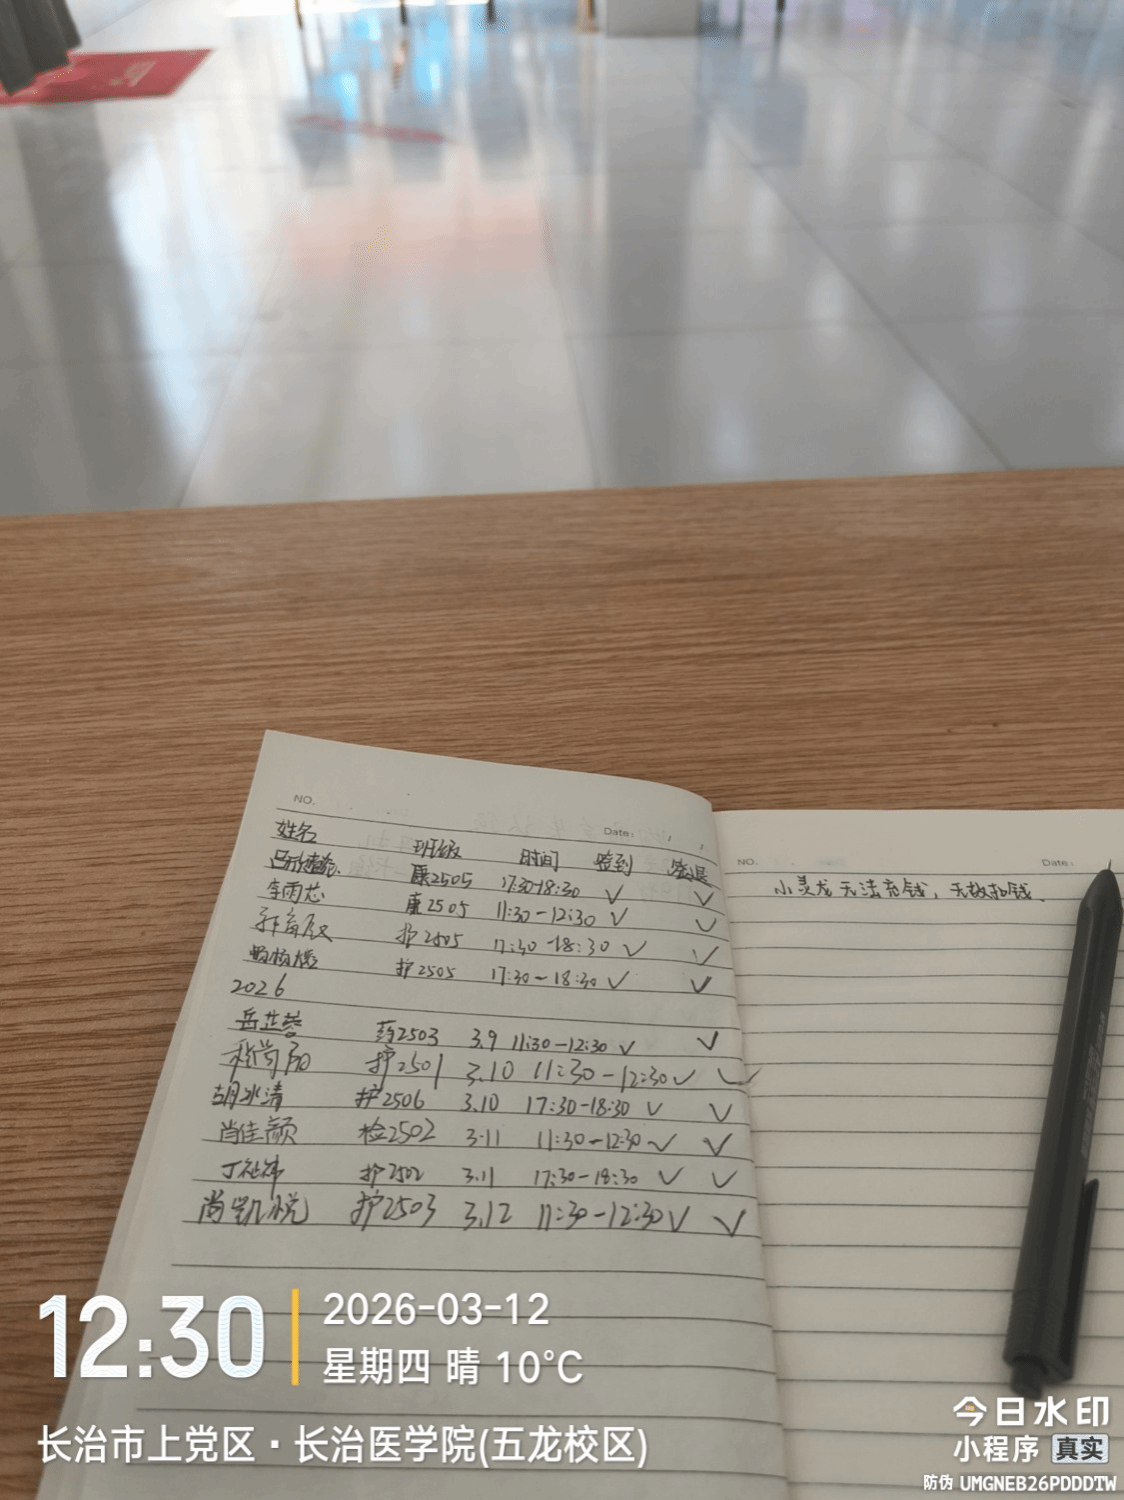 NO.
Date:
姓名 班级 时间 签到 签退
康2505 17:30-18:30 ✓ ✓
李雨芯 康2505 11:30-12:30 ✓ ✓
护2505 17:30-18:30 ✓ ✓
护2505 17:30-18:30 ✓ ✓
2026
岳芷蓉 药2503 3.9 11:30-12:30 ✓ ✓
护2501 3.10 11:30-12:30 ✓ ✓
胡冰清 护2506 3.10 17:30-18:30 ✓ ✓
肖佳颜 检2502 3.11 11:30-12:30 ✓ ✓
丁祉祎 护2502 3.11 17:30-18:30 ✓ ✓
尚凯悦 护2503 3.12 11:30-12:30 ✓ ✓
NO.
Date:
小灵龙无法充钱，无故扣钱、
12:30
2026-03-12
星期四 晴 10°C
长治市上党区·长治医学院(五龙校区)
今日水印
小程序 真实
防伪 UMGNEB26PDDDTW